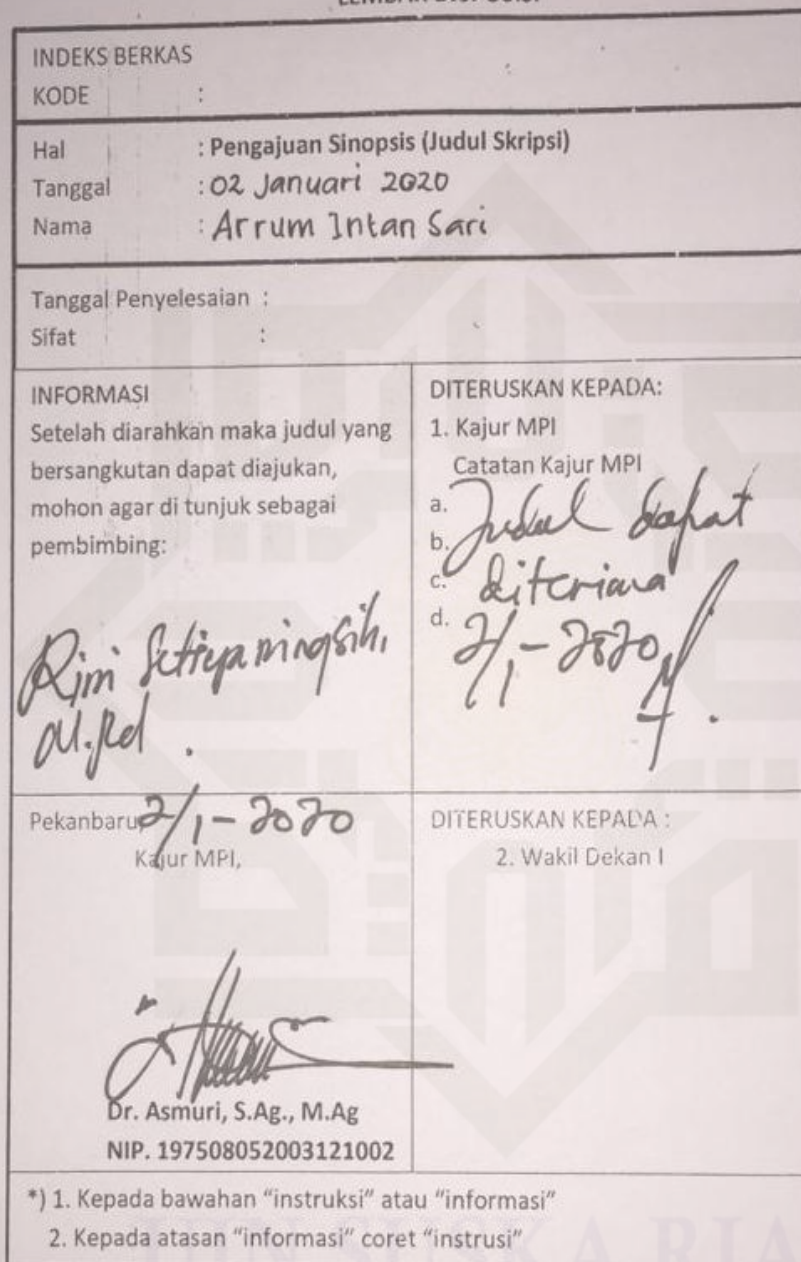 LEMBAR DISPOSISI
INDEKS BERKAS
KODE :
Hal : Pengajuan Sinopsis (Judul Skripsi)
Tanggal : 02 Januari 2020
Nama : Arrum Intan Sari
Tanggal Penyelesaian :
Sifat :
INFORMASI
Setelah diarahkan maka judul yang
bersangkutan dapat diajukan,
mohon agar di tunjuk sebagai
pembimbing:
Rini Setiyaningsih,
M.Pd.
DITERUSKAN KEPADA:
1. Kajur MPI
Catatan Kajur MPI
a. Judul dapat
b.
c. diterima
d. 2/1-2020
Pekanbaru, 2/1-2020
Kajur MPI,
Dr. Asmuri, S.Ag., M.Ag
NIP. 197508052003121002
DITERUSKAN KEPADA :
2. Wakil Dekan I
*) 1. Kepada bawahan "instruksi" atau "informasi"
2. Kepada atasan "informasi" coret "instrusi"
UIN SUSKA RIA